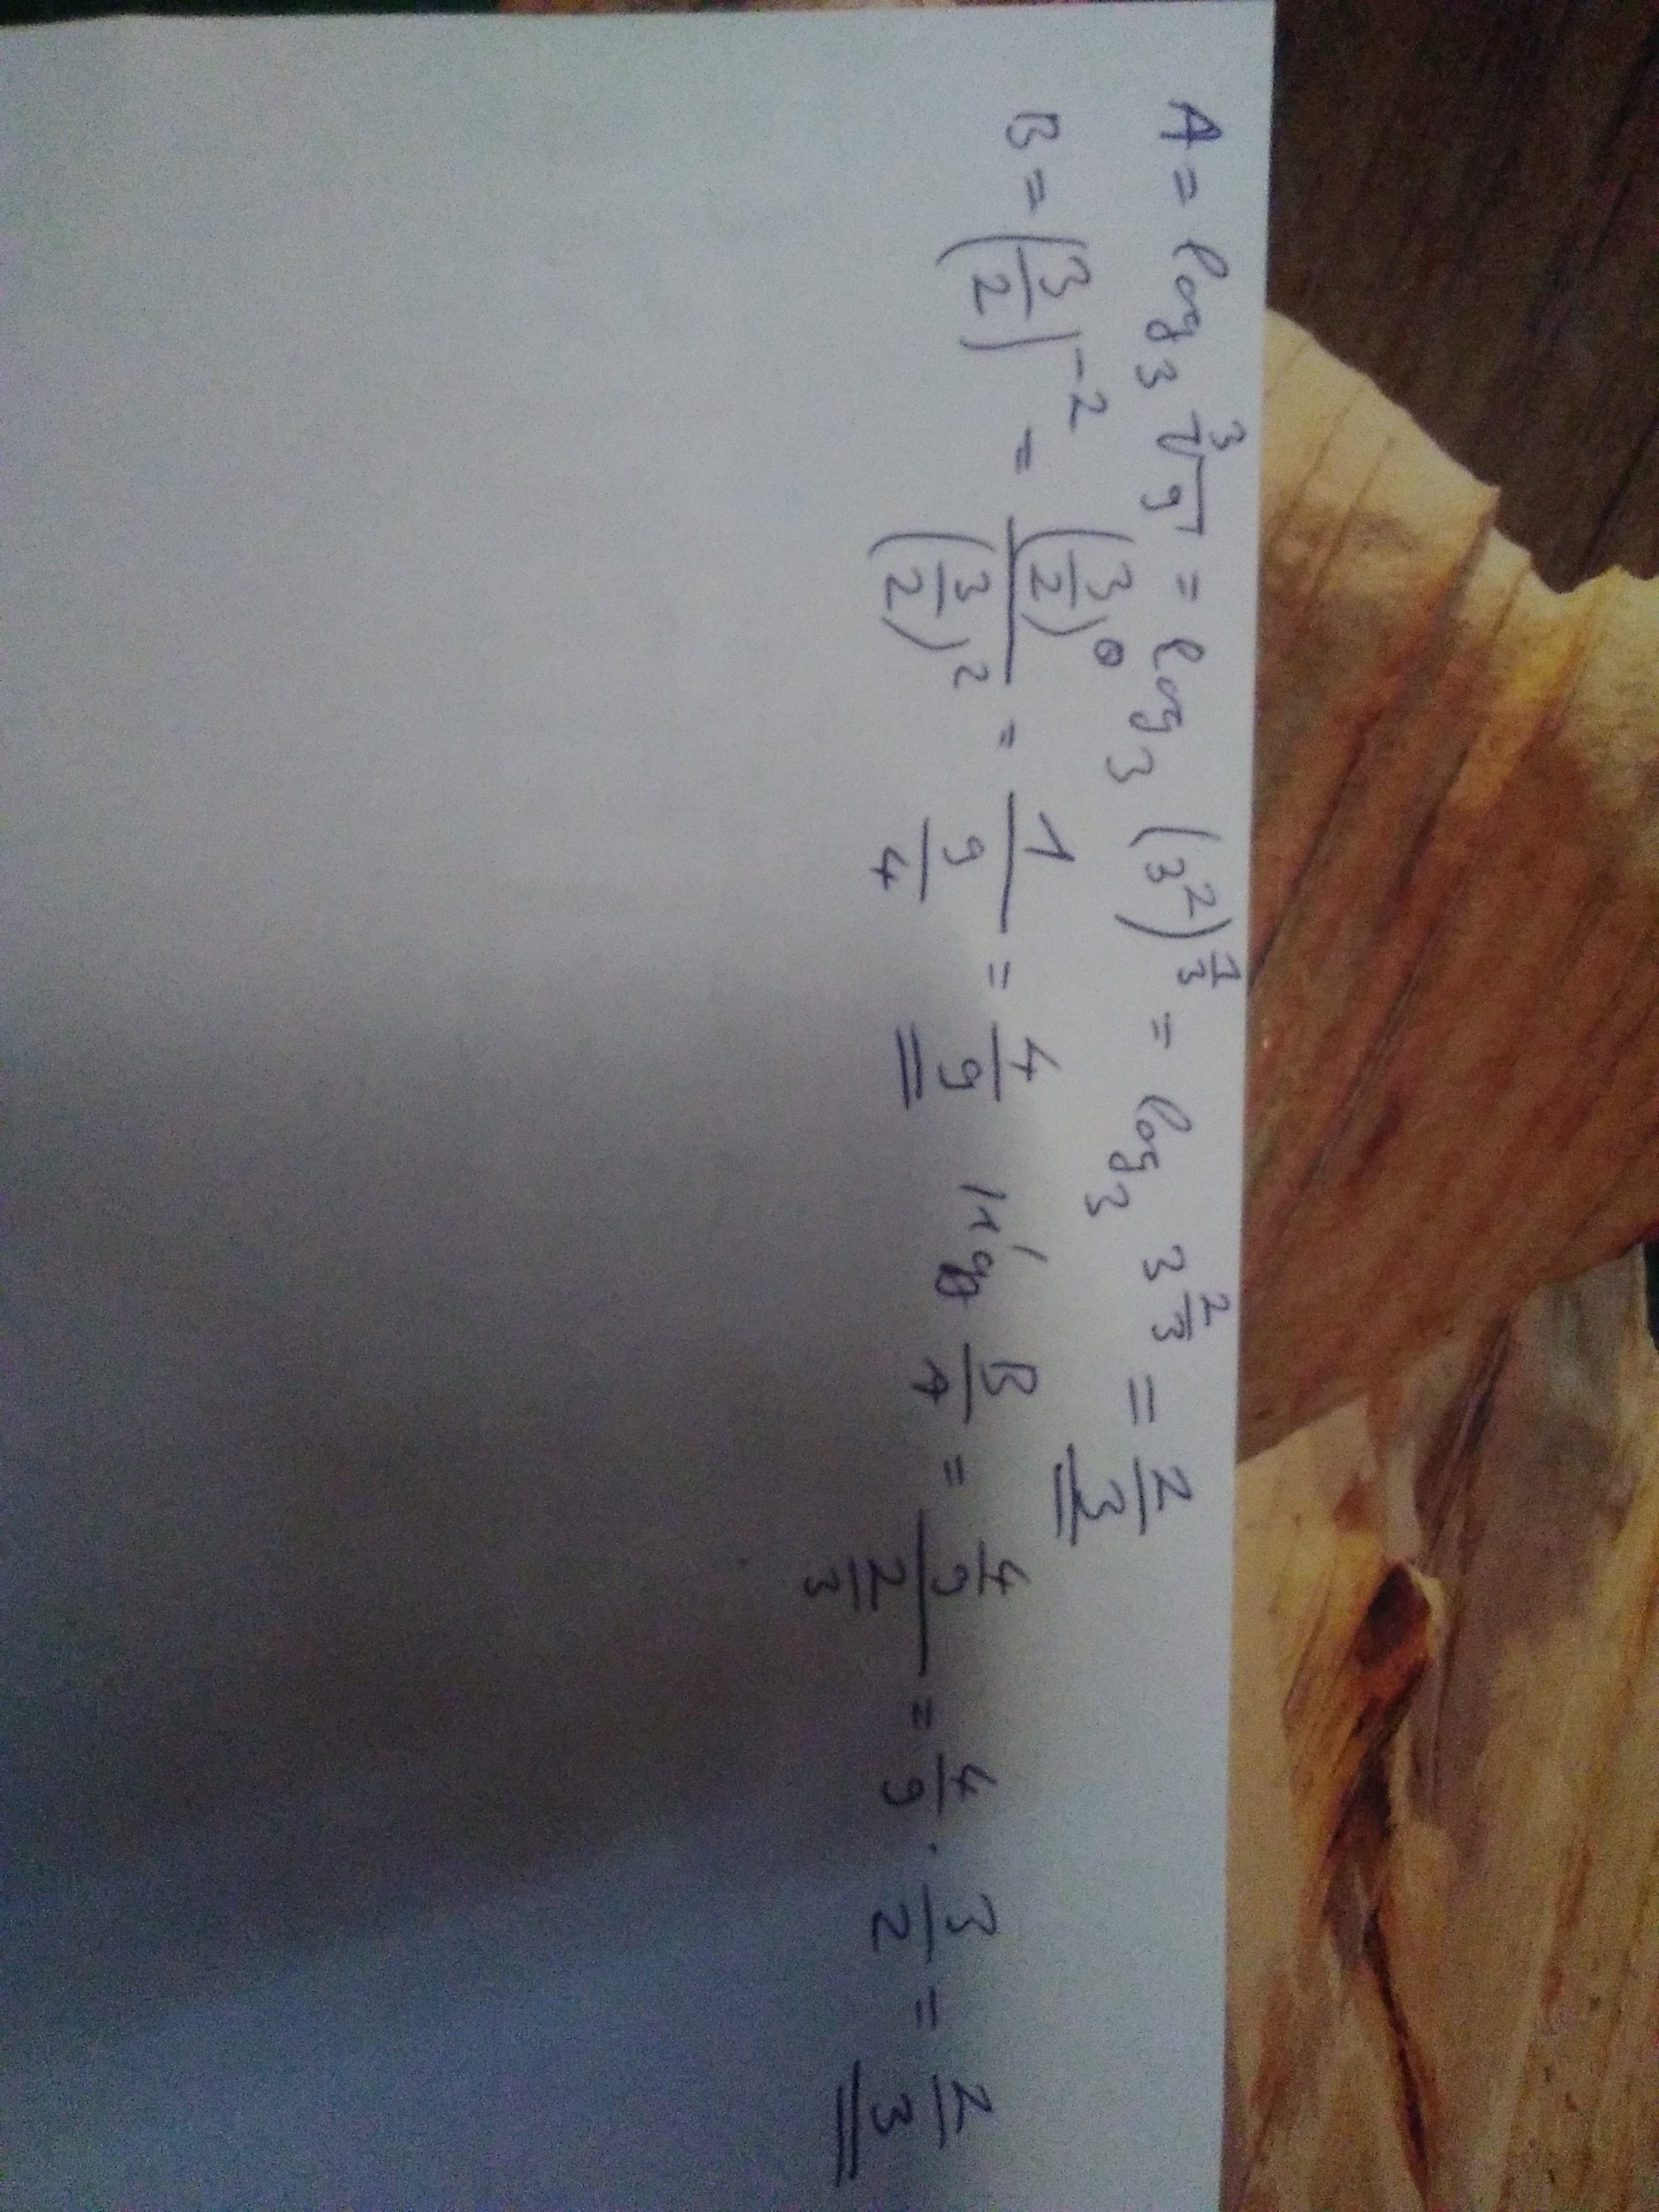 A = log₃ ³√9 = log₃ (3²)^(1/3) = log₃ 3^(2/3) = 2/3
B = (3/2)^(-2) = (3/2)^0 / (3/2)^2 = 1/(9/4) = 4/9 így B/A = (4/9)/(2/3) = 4/9 · 3/2 = 2/3